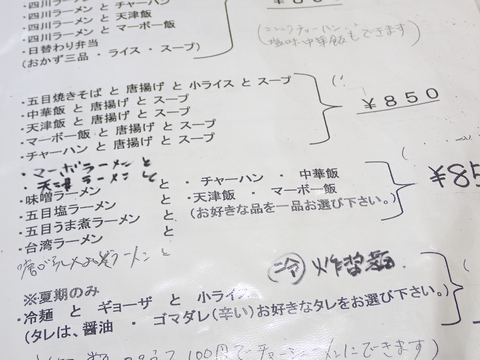 ・四川ラーメンと
・四川ラーメン と チャーハン
・四川ラーメン と 天津飯
・四川ラーメン と マーボー飯
・日替わり弁当
(おかず三品 ・ ライス ・ スープ)
中華飯もできます)
・五目焼きそば と 唐揚げ と 小ライス と スープ
・中華飯 と 唐揚げ と スープ
・天津飯 と 唐揚げ と スープ
・マーボー飯 と 唐揚げ と スープ
・チャーハン と 唐揚げ と スープ
¥850
・マーボラーメン と
・天津ラーメン と
・味噌ラーメン と ・ チャーハン ・ 中華飯
・五目塩ラーメン と ・ 天津飯 ・ マーボー飯
・五目うま煮ラーメン と (お好きな品を一品お選び下さい。)
・台湾ラーメン と
ラーメン と
冷 炸醤麺
※夏期のみ
・冷麺 と ギョーザ と 小ライス
(タレは、醤油 ・ ゴマダレ(辛い)お好きなタレをお選び下さい。)
100円でチャーシューメンにできます)